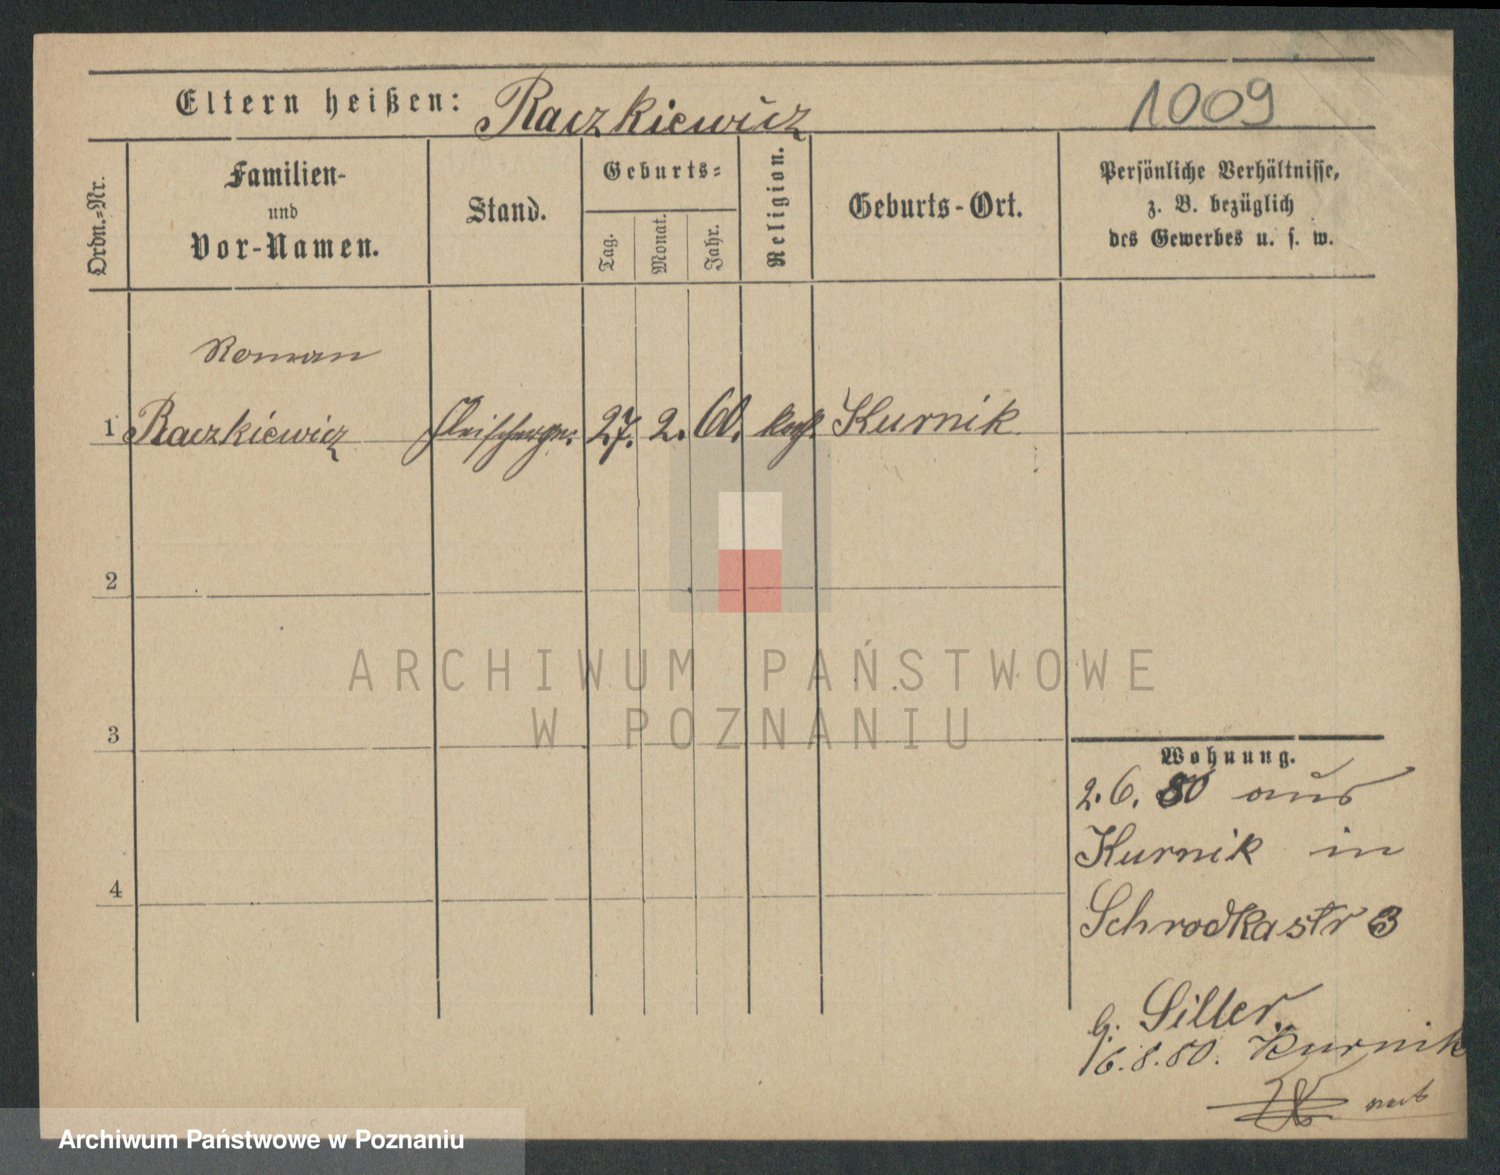 Eltern heißen: Raczkiewicz
1009
Ordn.-Nr.
Familien-
und
Vor-Namen.
Stand.
Geburts-
Tag.
Monat.
Jahr.
Religion.
Geburts-Ort.
Persönliche Verhältnisse,
z. B. bezüglich
des Gewerbes u. s. w.
Roman
1 Raczkiewicz Fleischerges. 27. 2. 60. kath. Kurnik
2
3
4
ARCHIWUM PAŃSTWOWE
W POZNANIU
Wohnung.
2. 6. 80 aus
Kurnik in
Schrodkastr 3
b. Siller.
16. 8. 80. Kurnik
Archiwum Państwowe w Poznaniu